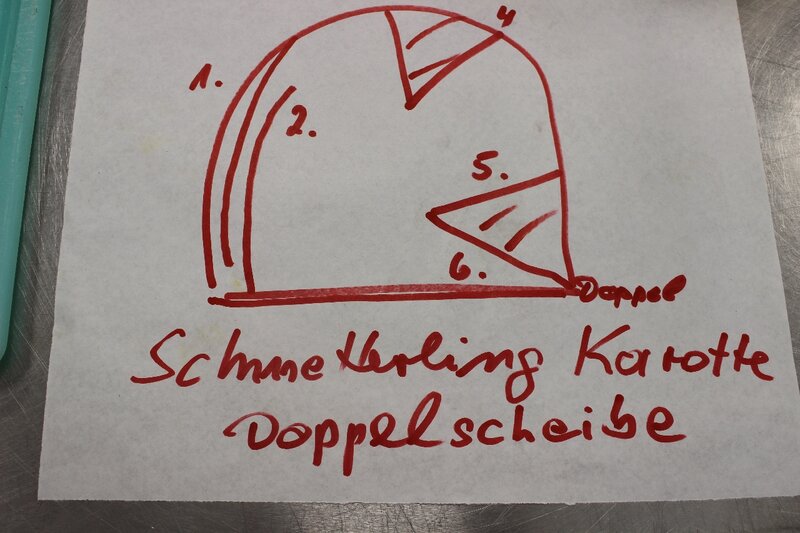 4
1.
2.
5.
6.
Doppel
Schmetterling Karotte
Doppelscheibe